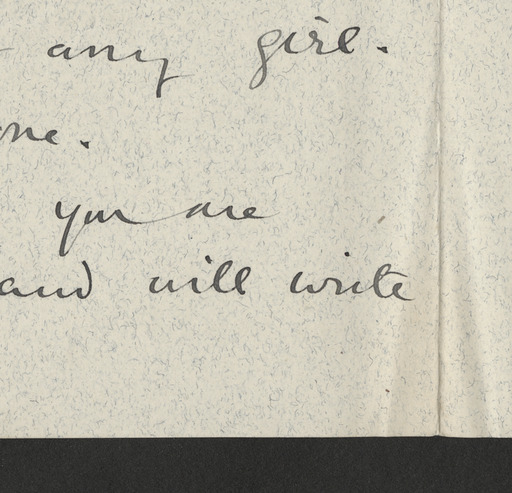 any girl.
you are
and will write